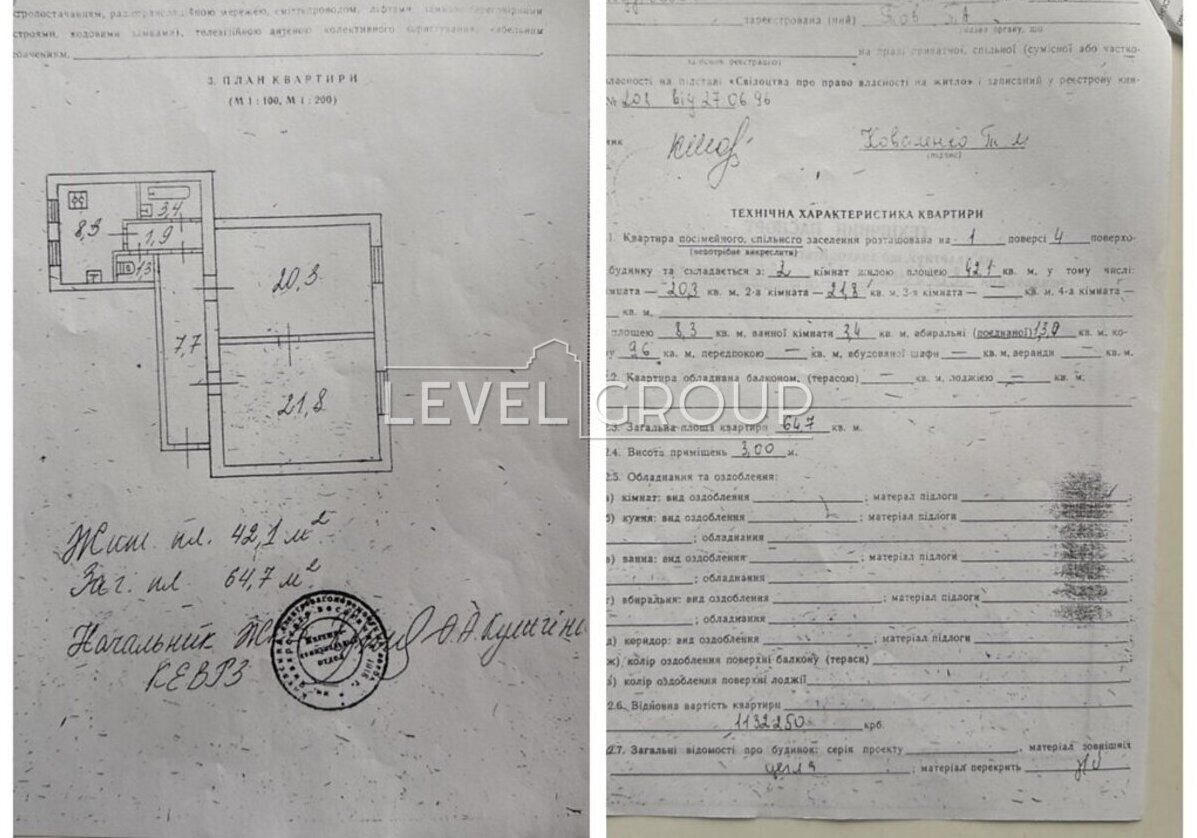 3. ПЛАН КВАРТИРИ
(М 1 : 100, М 1 : 200)
8,3
3,4
1,9
1,3
20,3
7,7
21,8
Жит. пл. 42,1 м²
Заг. пл 64,7 м²
Начальник
КЕВРЗ
LEVEL GROUP
зареєстрована (ний)
на праві приватної, спільної (сумісної або частко-
власності на підставі «Свідоцтва про право власності на житло» і записаний у реєстрову кни-
№ 203 від 27.06.96
Коваленко Т. М
(підпис)
ТЕХНІЧНА ХАРАКТЕРИСТИКА КВАРТИРИ
1. Квартира посімейного, спільного заселення розташована на 1 поверсі 4 поверхо-
(непотрібне викреслити)
будинку та складається з: 2 кімнат жилою площею 42,1 кв. м, у тому числі:
кімната — 20,3 кв. м, 2-а кімната — 21,8 кв. м, 3-я кімната — — кв. м, 4-а кімната —
кв. м,
площею 8,3 кв. м, ванної кімнати 3,4 кв. м, вбиральні (поєднаної) кв. м, ко-
9,6 кв. м, передпокою — кв. м, вбудованої шафи — кв. м, веранди — кв. м.
2.2. Квартира обладнана балконом, (терасою) — кв. м, лоджією — кв. м;
2.3. Загальна площа квартири 64,7 кв. м.
2.4. Висота приміщень 3,00 м.
2.5. Обладнання та оздоблення:
а) кімнат: вид оздоблення ; матерал підлоги ;
б) кухня: вид оздоблення ; матеріал підлоги ;
; обладнання ;
в) ванна: вид оздоблення ; матеріал підлоги
; обладнання ;
г) вбиральня: вид оздоблення ; матеріал підлоги
; обладнання ;
д) коридор: вид оздоблення ; матеріал підлоги
ж) колір оздоблення поверхні балкону (тераси) ;
з) колір оздоблення поверхні лоджії
2.6. Відновна вартість квартири
1132250 крб.
2.7. Загальні відомості про будинок: серія проекту , матеріал зовнішніх
цегла ; матеріал перекрить